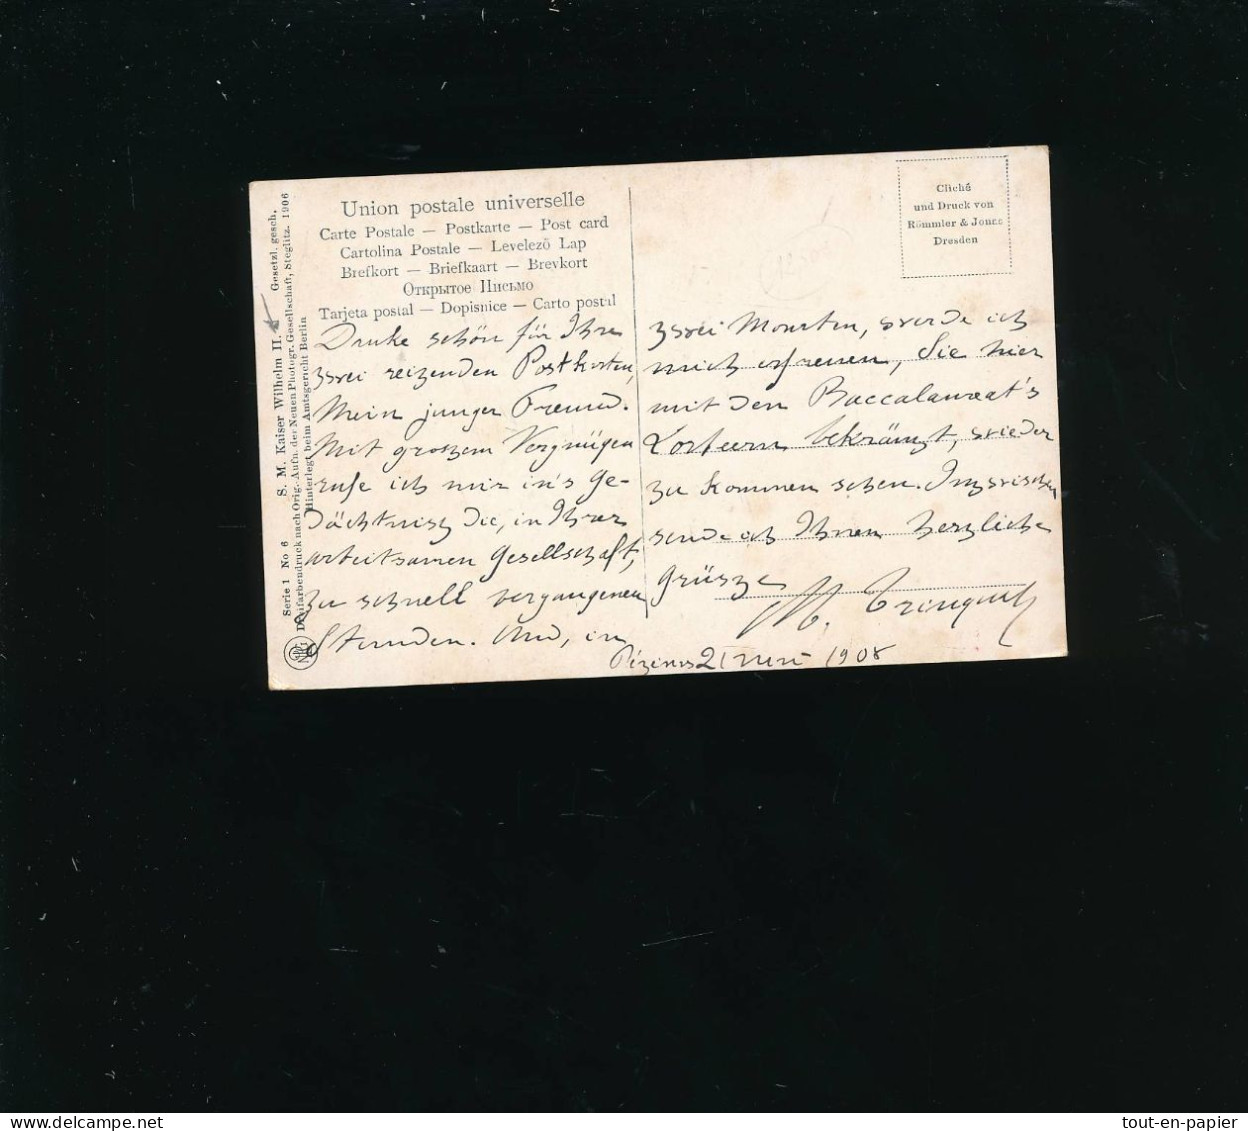 Union postale universelle
Carte Postale — Postkarte — Post card
Cartolina Postale — Levelező Lap
Brefkort — Briefkaart — Brevkort
Открытое Письмо
Tarjeta postal — Dopisnice — Carto postal
Danke schön für Ihre
zwei reizenden Postkarten,
Mein junger Freund.
Mit groszem Vergnügen
rufe ich mir in's Ge-
dächtnisz die, in Ihrer
arbeitsamen Gesellschaft,
zu schnell vergangenen
Stunden. Und, in
zwei Monaten, werde ich
mich erfreuen, Sie hier
mit den Baccalaureat's
Lorbeern bekränzt, wieder
zu kommen sehen. Inzwischen
sende ich Ihnen herzliche
Grüsze
Pézenas 21 1908
Cliché
und Druck von
Römmler & Jonas
Dresden
Serie 1 No 6 S. M. Kaiser Wilhelm II. Gesetzl. gesch.
Dreifarbendruck nach Orig.-Aufn. der Neuen Photogr. Gesellschaft, Steglitz. 1906
Hinterlegt beim Amtsgericht Berlin
NPG
tout-en-papier